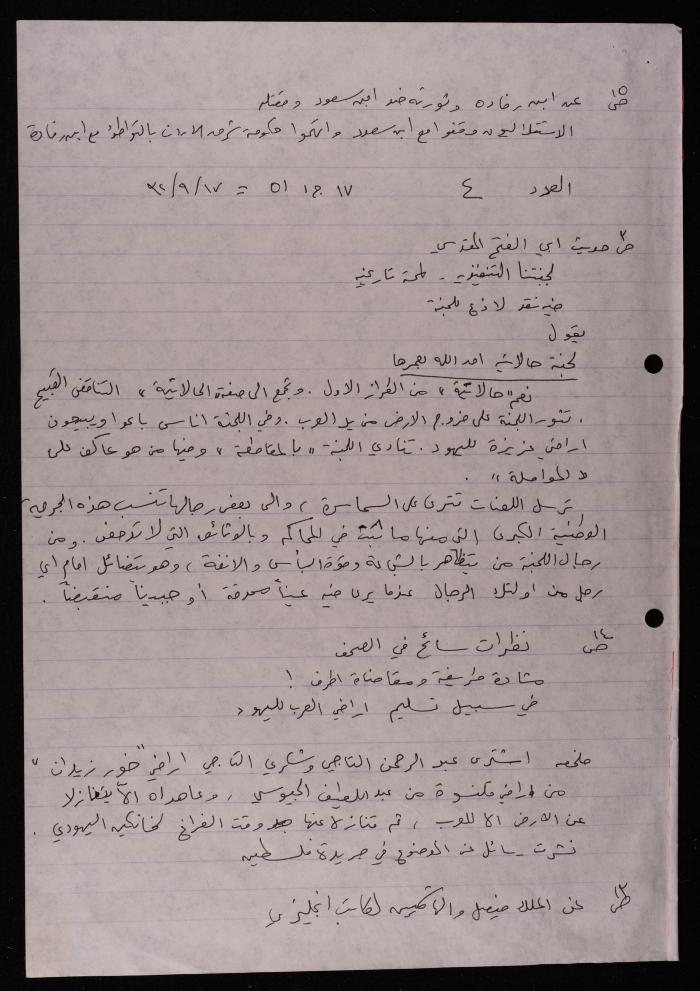 ص١٥ عن ابن رفادة وثورته ضد ابن سعود ومقتله
الاستقلاليون وقفوا مع ابن سعود واتهموا حكومة شرق الاردن بالتواطؤ مع ابن رفادة
العدد ٤ ١٧ ج١ ٥١ = ٣٢/٩/١٧
ص٣ حديث ابي الفتح المقدسي
لجنتنا التنفيذية - لمحة تاريخية
فيه نقد لاذع للجنة
يقول
لجنة حالاتية امد الله بعمرها
نعم "حالاتية" من الطراز الاول. وتجمع الى صفة الحالاتية، التناقض القبيح
، تثور اللجنة على خروج الارض من يد العرب. وفي اللجنة اناس باعوا ويبيعون
اراضي عزيزة لليهود. تنادي اللجنة "بالمقاطعة" وفيها من هو عاكف على
"المواصلة".
ترسل اللعنات تترى على السماسرة، والى بعض رجالها تنسب هذه الجريمة
الوطنية الكبرى التي منها ما ثبت في المحاكم وبالوثائق التي لا تدحض. ومن
رجال اللجنة من يتظاهر بالشجاعة وقوة البأس والانفة، وهو يتضائل امام اي
رجل من اولئك الرجال عندما يرى فيه عيناً محدقة أو جبيناً منقبضاً.
ص١٤ نظرات سائح في الصحف
مشادة طريفة ومقاضاة اطرف!
في سبيل تسليم اراضي العرب لليهود
ملخصه اشترى عبد الرحمن التاجي وشكري التاجي اراضي "خور زيدان"
من اراضي قلنسوة من عبد اللطيف الجيوسي، وعاهداه الا يتنازلا
عن الارض الا للعرب، ثم تنازلا عنها وقت الفراغ لخانكين اليهودي.
نشرت رسائل عن الموضوع في جريدة فلسطين
ص١٣ عن الملك فيصل والتاكسي لكاتب انجليزي